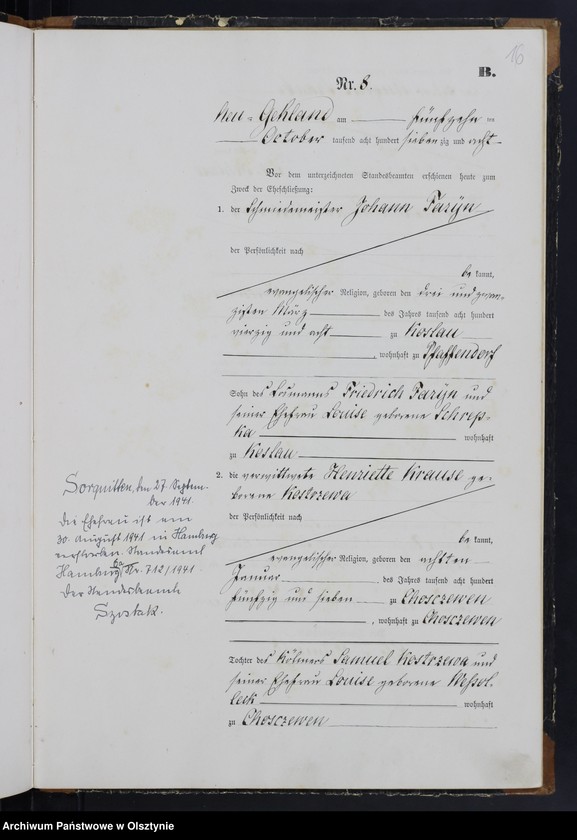 16
B.
Nr. 8.
Neu-Gehland am fünfzehn ten
October tausend acht hundert siebenzig und acht
Vor dem unterzeichneten Standesbeamten erschienen heute zum
Zweck der Eheschließung:
1. der Schmiedemeister Johann Faryn
der Persönlichkeit nach
be kannt,
evangelischer Religion, geboren den drei und zwan-
zigsten März des Jahres tausend acht hundert
vierzig und acht zu Koslau
, wohnhaft zu Pfaffendorf
Sohn des Losmanns Friedrich Faryn und
seiner Ehefrau Louise geborene Schrep-
ka wohnhaft
zu Koslau
2. die verwittwete Henriette Krause ge-
borene Kostrzewa
der Persönlichkeit nach
be kannt,
evangelischer Religion, geboren den achten
Januar des Jahres tausend acht hundert
fünfzig und sieben zu Choszewen
, wohnhaft zu Choszewen
Tochter des Kölmers Samuel Kostrzewa und
seiner Ehefrau Louise geborene Wessol-
leck wohnhaft
zu Choszewen
Sorquitten, den 27. Septem-
ber 1941.
Die Ehefrau ist am
30. August 1941 in Hamburg
verstorben. Standesamt
Hamburg 6a (Nr. 712/1941.
Der Standesbeamte
Szostak.
Archiwum Państwowe w Olsztynie